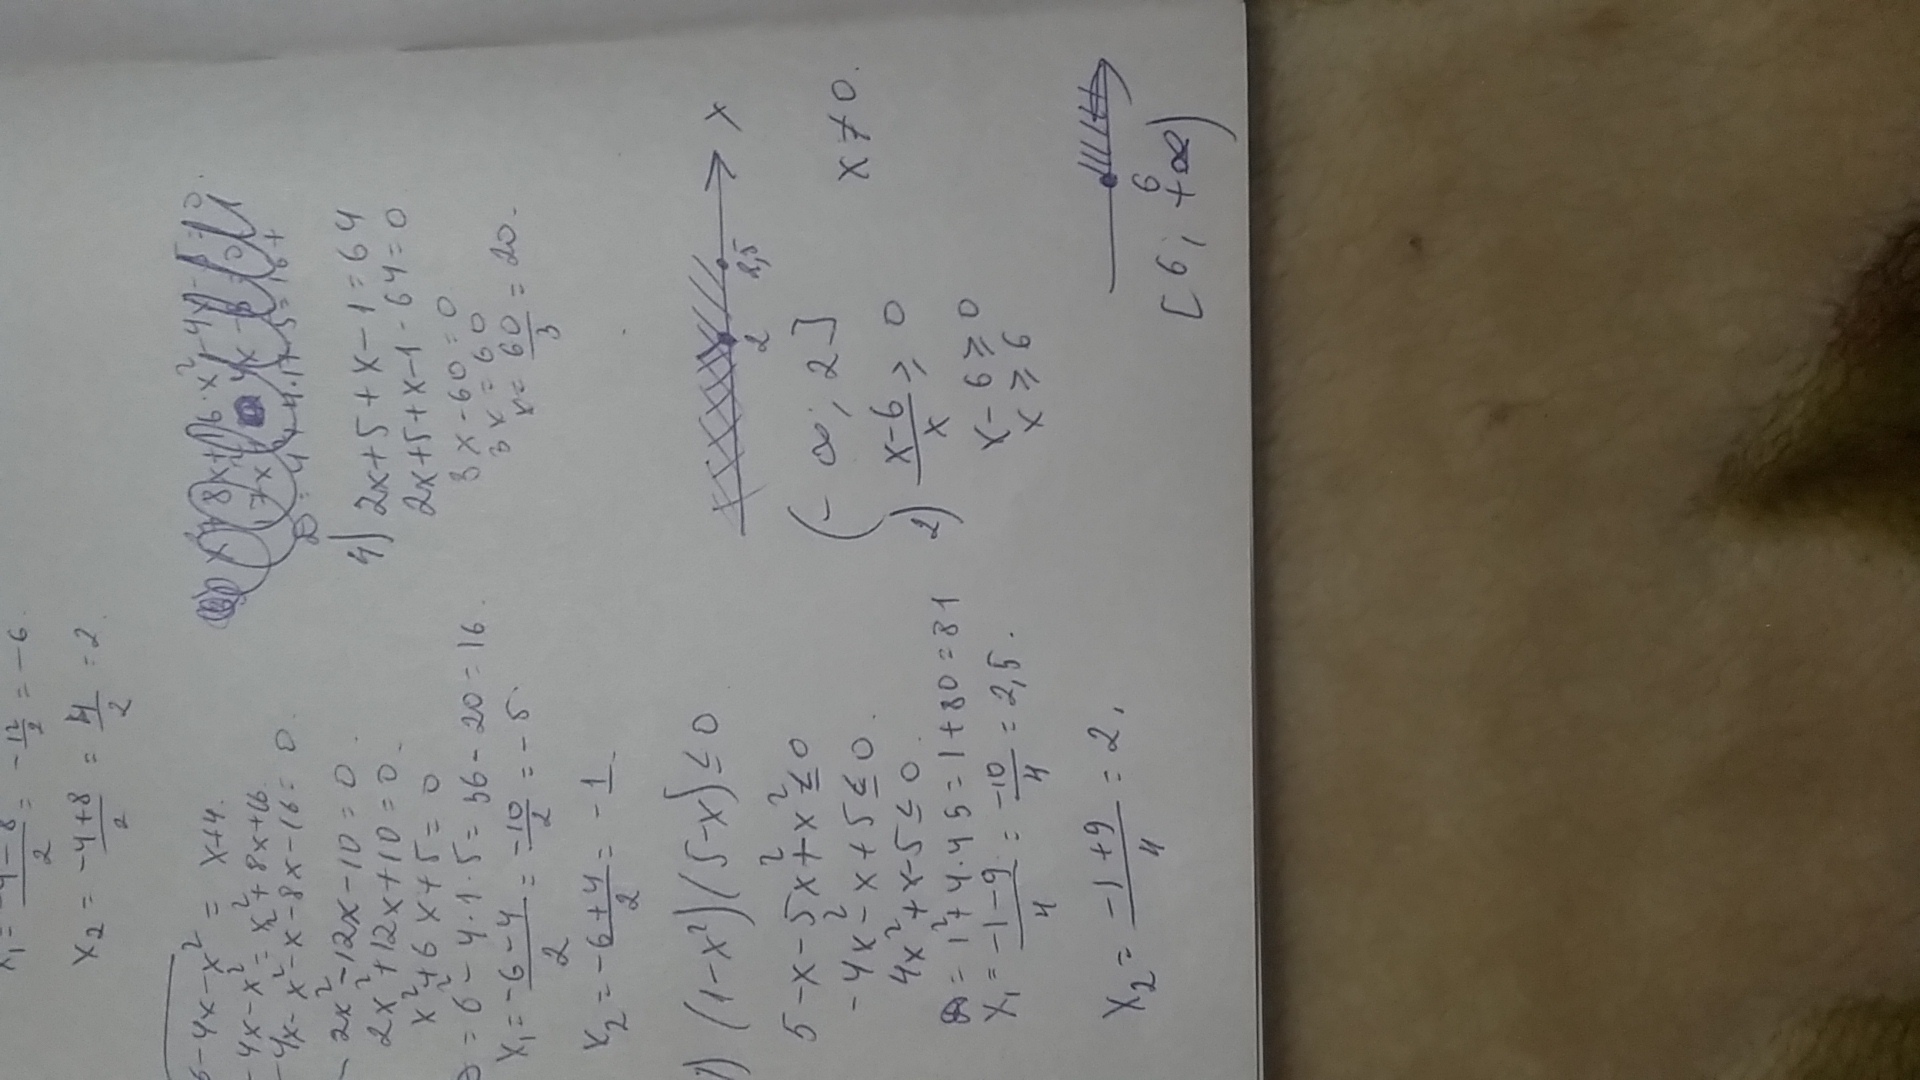 = -12/2 = -6.
x₂ = -4+8/2 = 4/2 = 2.
5-4x-x² = x+4.
-4x-x² = x²+8x+16.
-4x-x²-x-8x-16=0.
-2x²-12x-10=0.
2x²+12x+10=0.
x²+6x+5=0
= 6²-4·1·5=36-20=16.
x₁ = -6-4/2 = -10/2 = -5.
x₂ = -6+4/2 = -1.
4) 2x+5+x-1=64
2x+5+x-1-64=0
3x-60=0
3x=60
x=60/3=20.
1) (1-x²)(5-x)≤0
5-x-5x²+x²≤0
-4x²-x+5≤0.
4x²+x-5≤0.
D=1²+4·4·5=1+80=81
x₁ = -1-9/4 = -10/4 = 2,5.
x₂ = -1+9/4 = 2.
2 2,5 x
(-∞; 2]
2) x-6/x ≥ 0 x≠0.
x-6≥0
x≥6
6
[6; +∞)